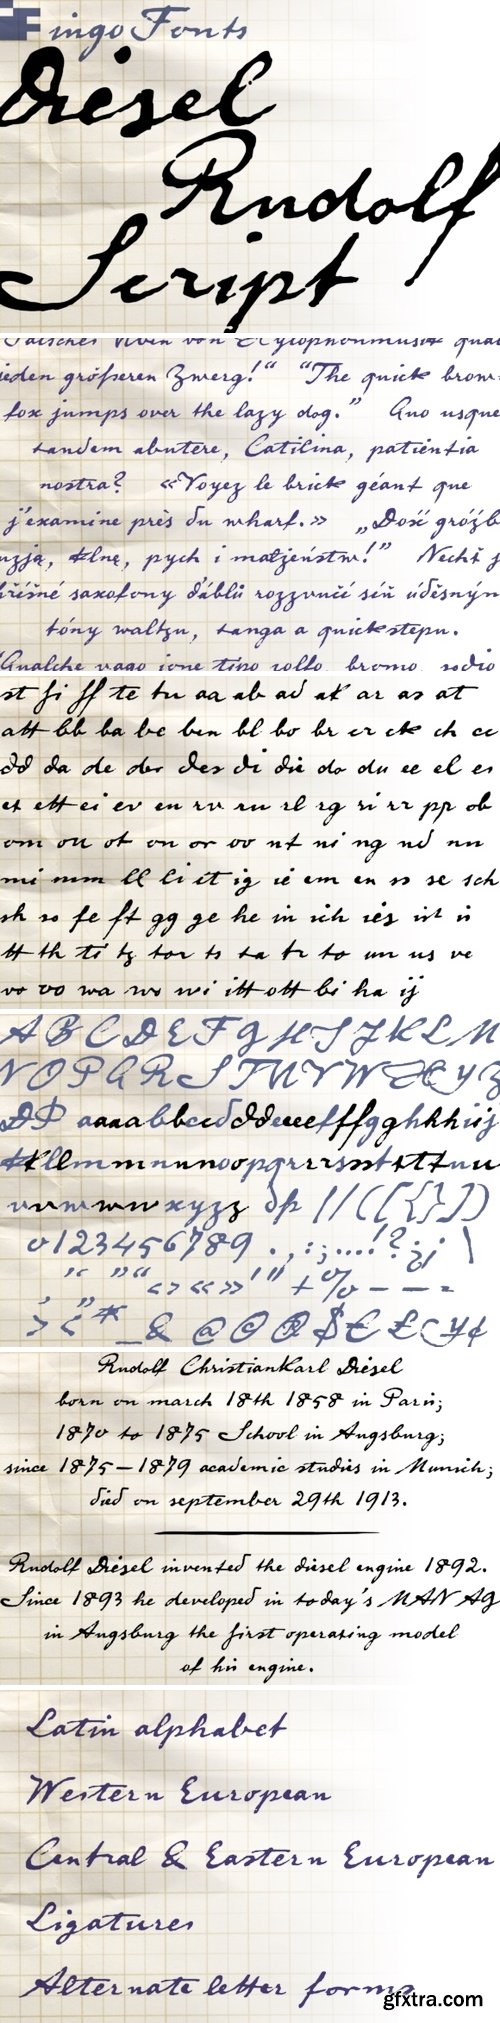 FingoFonts
Diesel
Rudolf
Script
von Xylophonmusik
größeren Zwerg!“ “The quick brown
fox jumps over the lazy dog.” Quo usque
tandem abutere, Catilina, patientia
nostra? «Voyez le brick géant que
j'examine près du wharf.» „Dość gróźb
pych i małżeństw!” Nechť
saxofony ďáblů rozzvučí síň úděsným
tóny waltzu, tanga a quickstepu.
Qualche vago ione tipo zolfo, bromo, sodio
st fi ff te tu aa ab ad ak ar as at
att bb ba be ben bl bo br er ck ch cc
dd da de der des di die do du ee el es
et ett ei ev en rv ru rl rg ri rr pp ob
om ou ot on or oo nt ni ng nd nn
mi mm ll li et ig ie em en ss se sch
sh so fe ft gg ge he in ich ies ist is
tt th ti tz tor ts ta tr to un us ve
vo oo wa wo wi itt ott bi ha ij
A B C D E F G H I J K L M
N O P Q R S T U V W X Y Z
/ | ( [ { } ] )
0123456789 . , : ; … . ! ? ¿ ¡ \
‹ › « » ' " + % – — - =
> < * _ & @ © ® $ € £ ¥ ¢
Rudolf ChristianKarl Diesel
born on march 18th 1858 in Paris;
1870 to 1875 School in Augsburg;
since 1875–1879 academic studies in Munich;
died on september 29th 1913.
Rudolf Diesel invented the diesel engine 1892.
Since 1893 he developed in today's MAN AG
in Augsburg the first operating model
of his engine.
Latin alphabet
Western European
Central & Eastern European
Ligatures
Alternate letter forms
gfxtra.com